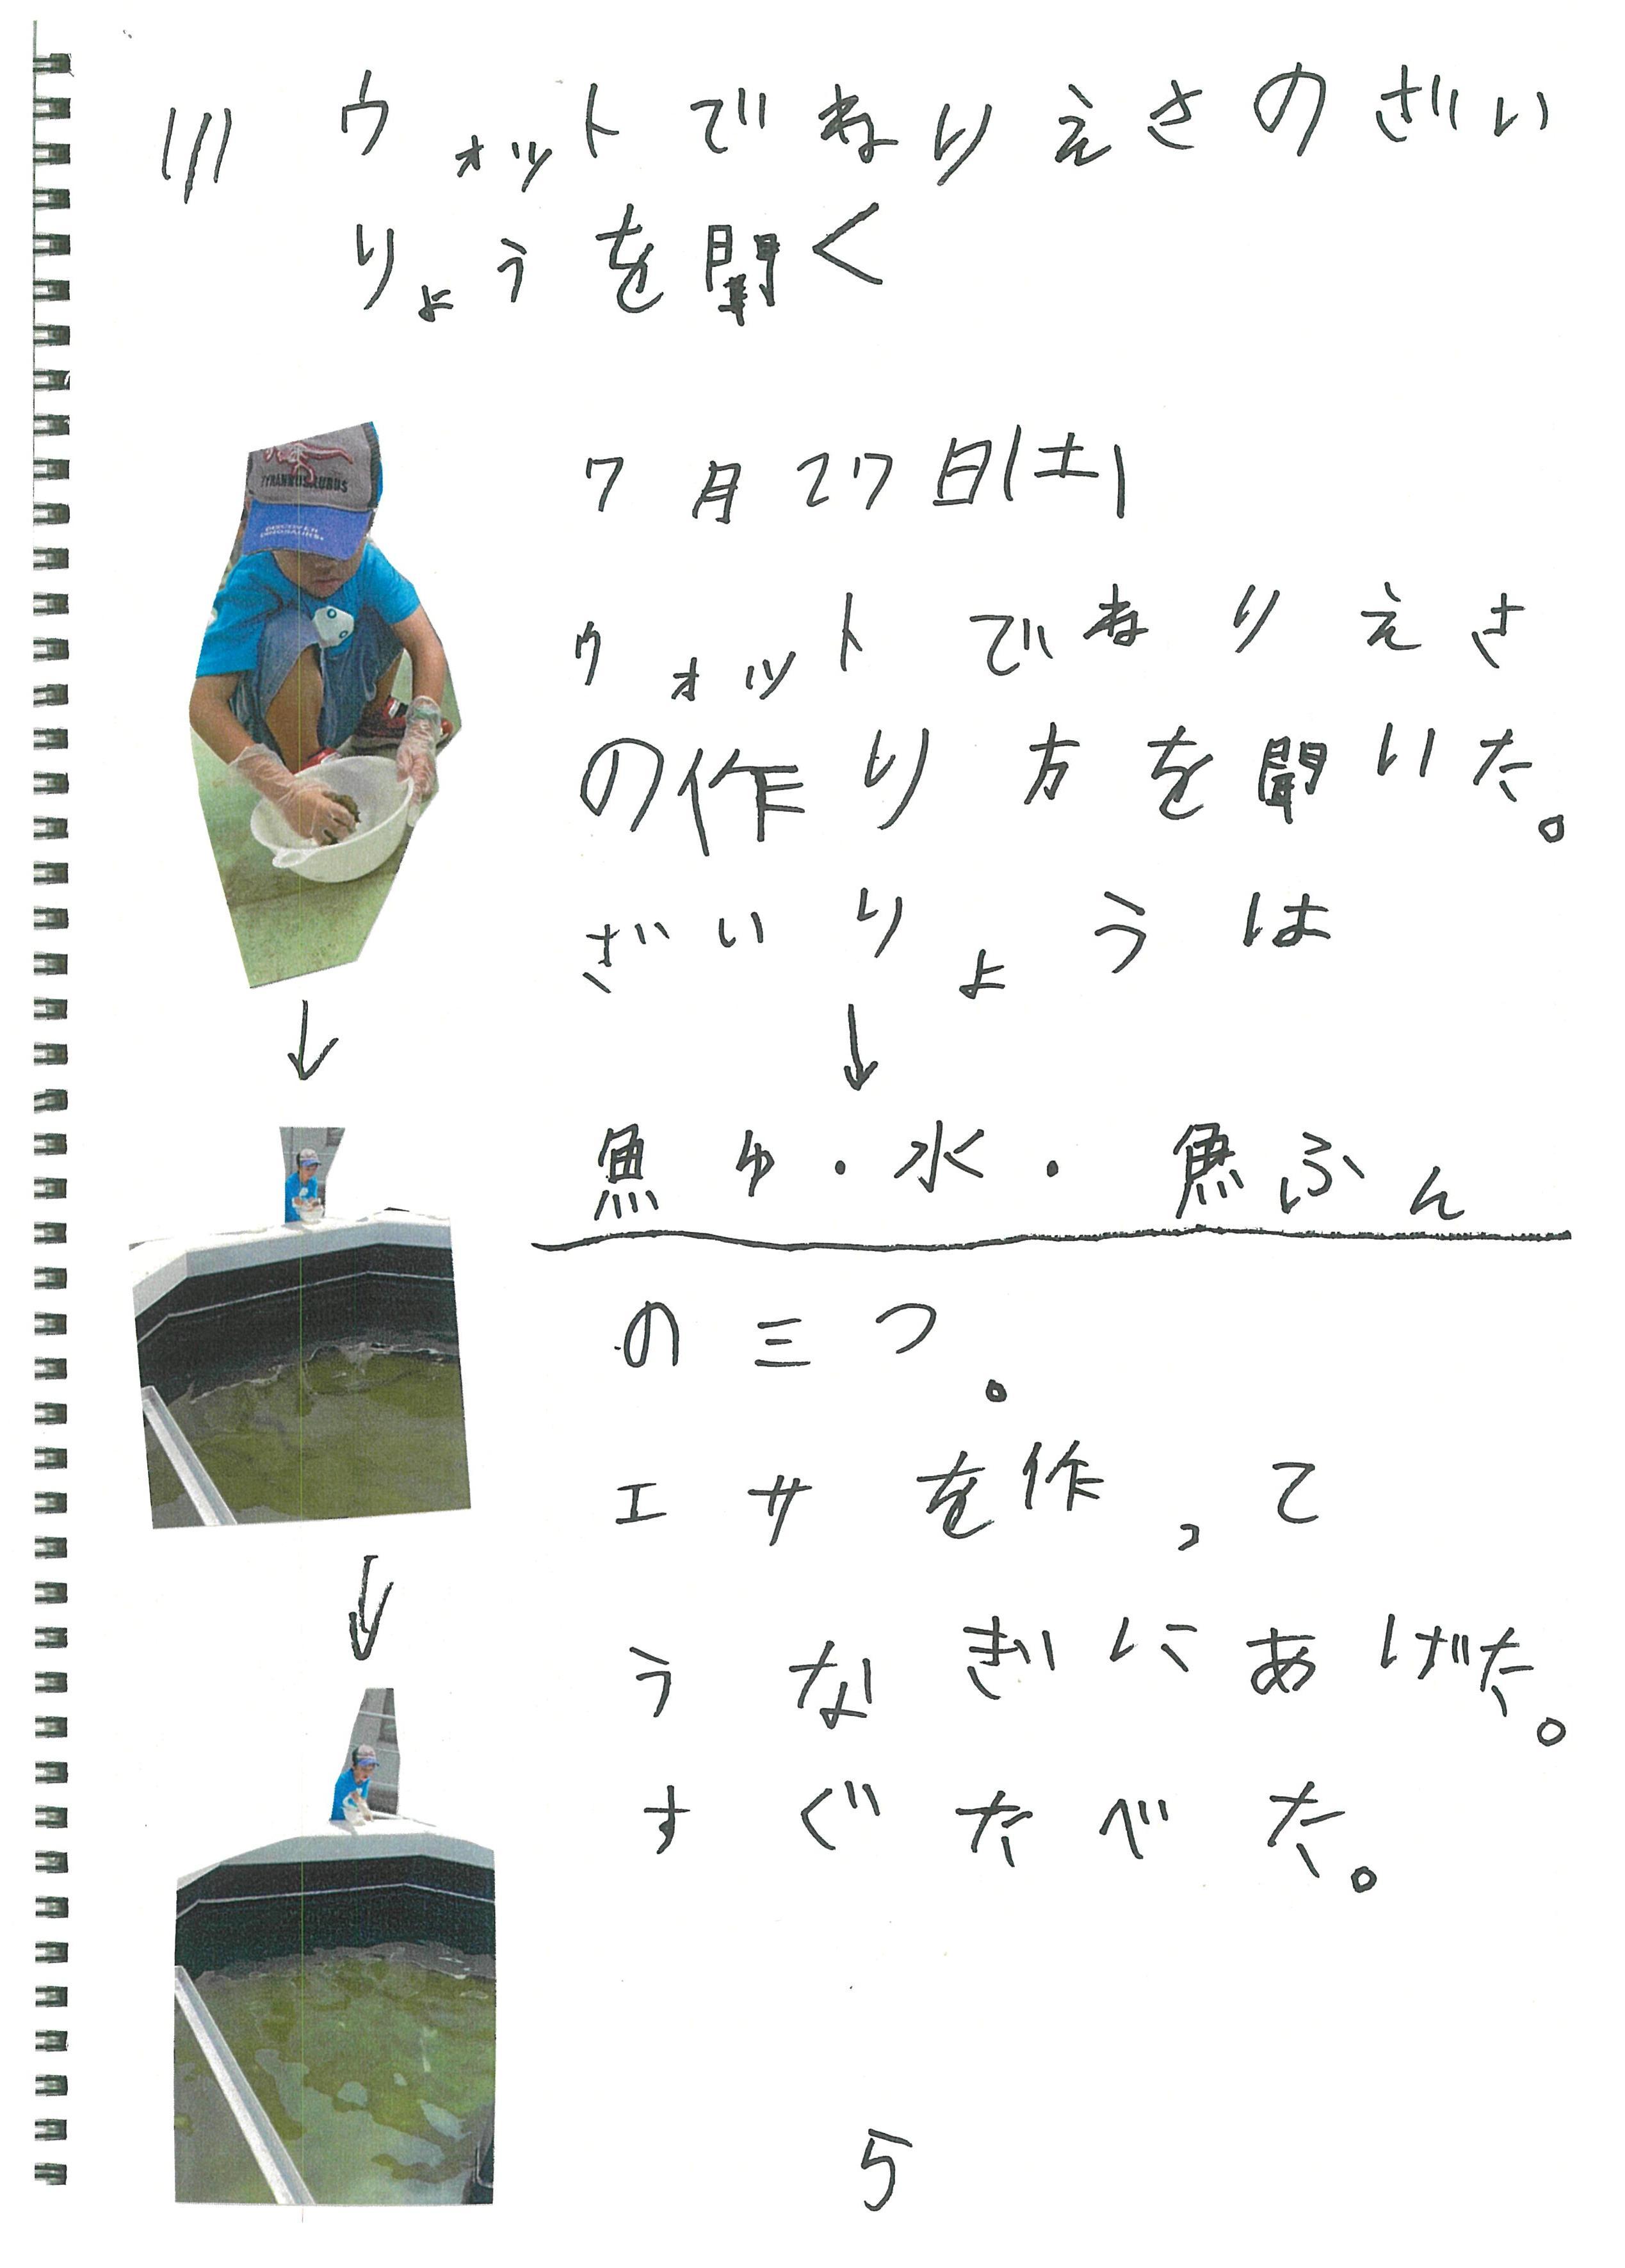 (1) ウォットでねりえさのざい
りょうを聞く
TYRANNOSAURUS
DISCOVER
DINOSAURS
7月27日(土)
ウォットでねりえさ
の作り方を聞いた。
ざいりょうは
↓
魚ゆ・水・魚ふん
の三つ。
エサを作って
うなぎにあげた。
すぐたべた。
5